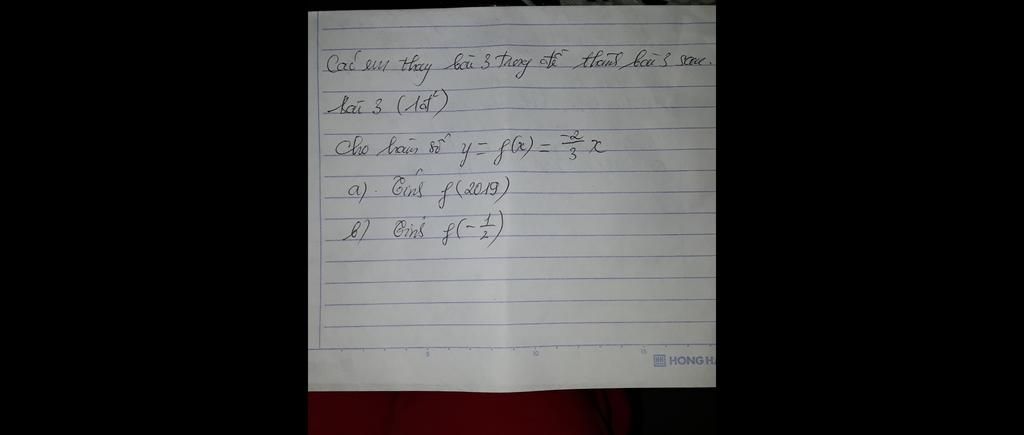 Các em thay bài 3 trong đề thành bài 3 sau.
bài 3 (1đ)
Cho hàm số y = f(x) = -2/3 x
a). Tính f(2019)
b) Tính f(-1/2)
5 10 15
HONG HA